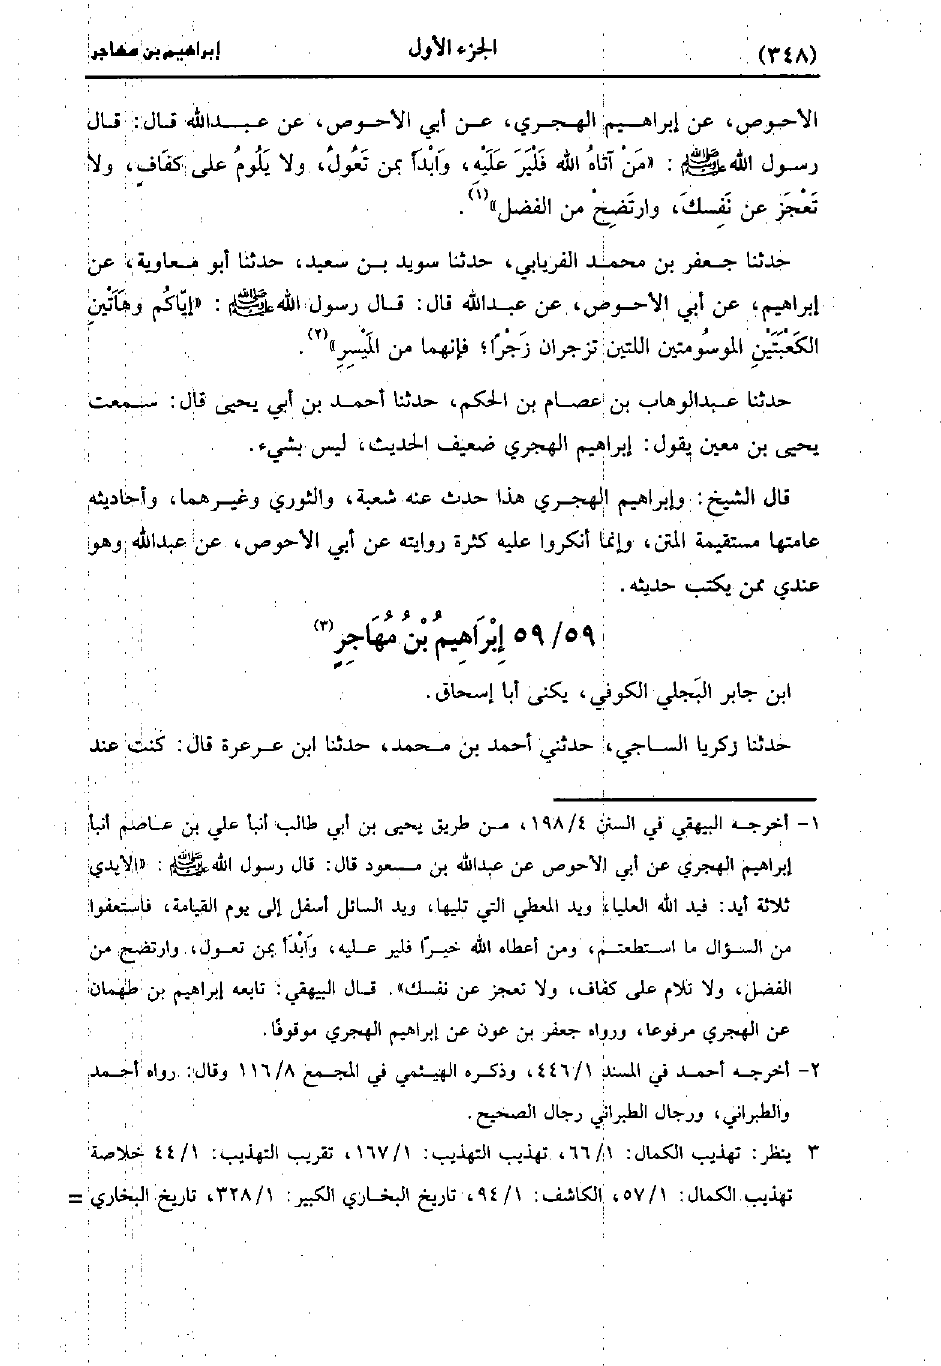 (٣٤٨) الجزء الأول إبراهيم بن مهاجر
الأحوص، عن إبراهيم الهجري، عن أبي الأحوص، عن عبدالله قال: قال
رسول الله ﷺ : «مَنْ آتَاهُ الله فَلْيَرَ عَلَيْهِ، وَابْدَأ بمن تَعُولُ، ولا يَلُومُ على كَفَافٍ، ولا
تَعْجَز عن نَفِسكَ، وارتَضِخْ من الفضل»(١).
حدثنا جعفر بن محمد الفريابي، حدثنا سويد بن سعيد، حدثنا أبو معاوية، عن
إبراهيم، عن أبي الأحوص، عن عبدالله قال: قال رسول الله ﷺ : «إيّاكُم وهَاتَيْنِ
الكَعْبَتَيْنِ الموسُومتين اللتين تزجران زَجْرًا؛ فإنهما من الْمَيْسِرِ»(٢).
حدثنا عبدالوهاب بن عصام بن الحكم، حدثنا أحمد بن أبي يحيى قال: سمعت
يحيى بن معين يقول: إبراهيم الهجري ضعيف الحديث، ليس بشيء.
قال الشيخ: وإبراهيم الهجري هذا حدث عنه شعبة، والثوري وغيرهما، وأحاديثه
عامتها مستقيمة المتن، وإنما أنكروا عليه كثرة روايته عن أبي الأحوص، عن عبدالله وهو
عندي ممن يكتب حديثه.
٥٩/ ٥٩ إِبْرَاهِيمُ بْنُ مُهَاجِرٍ(٣)
ابن جابر البَجلي الكوفي، يكنى أبا إسحاق.
حدثنا زكريا الساجي، حدثني أحمد بن محمد، حدثنا ابن عرعرة قال: كنت عند
١- أخرجه البيهقي في السنن ١٩٨/٤، من طريق يحيى بن أبي طالب أنبأ علي بن عاصم أنبأ
إبراهيم الهجري عن أبي الأحوص عن عبدالله بن مسعود قال: قال رسول الله ﷺ : «الأيدي
ثلاثة أيد: فيد الله العلياء ويد المعطي التي تليها، ويد السائل أسفل إلى يوم القيامة، فاستعفوا
من السؤال ما استطعتم، ومن أعطاه الله خيرًا فلير عليه، وَابْدَأ بمن تعول، وارتضخ من
الفضل، ولا تلام على كفاف، ولا تعجز عن نفسك». قال البيهقي: تابعه إبراهيم بن طهمان
عن الهجري مرفوعا، ورواه جعفر بن عون عن إبراهيم الهجري موقوفًا.
٢- أخرجه أحمد في المسند ٤٤٦/١، وذكره الهيثمي في المجمع ١١٦/٨ وقال: رواه أحمد
والطبراني، ورجال الطبراني رجال الصحيح.
٣ ينظر: تهذيب الكمال: ٦٦/١، تهذيب التهذيب: ١٦٧/١، تقريب التهذيب: ٤٤/١ خلاصة
تهذيب الكمال: ٥٧/١، الكاشف: ٩٤/١، تاريخ البخاري الكبير: ٣٢٨/١، تاريخ البخاري =